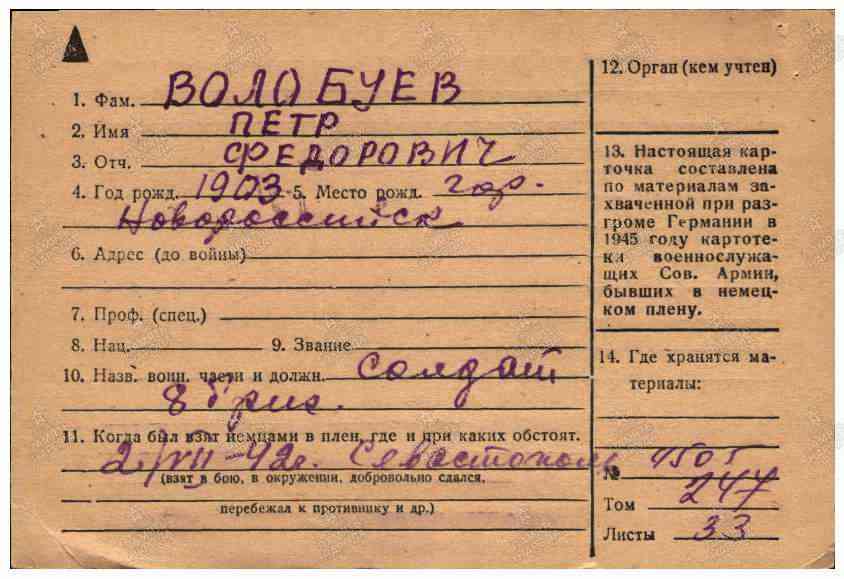 1. Фам. ВОЛОБУЕВ
2. Имя ПЕТР
3. Отч. ФЕДОРОВИЧ
4. Год рожд. 1903 5. Место рожд. гор.
Новороссийск
6. Адрес (до войны)
7. Проф. (спец.)
8. Нац. 9. Звание
10. Назв. воин. части и должн. солдат
8 бриг.
11. Когда был взят немцами в плен, где и при каких обстоят.
2/VII-42г. Севастополь
(взят в бою, в окружении, добровольно сдался,
перебежал к противнику и др.)
12. Орган (кем учтен)
13. Настоящая кар-
точка составлена
по материалам за-
хваченной при раз-
громе Германии в
1945 году картоте-
ки военнослужа-
щих Сов. Армии,
бывших в немец-
ком плену.
14. Где хранятся ма-
териалы:
№ 4505
Том 247
Листы 33